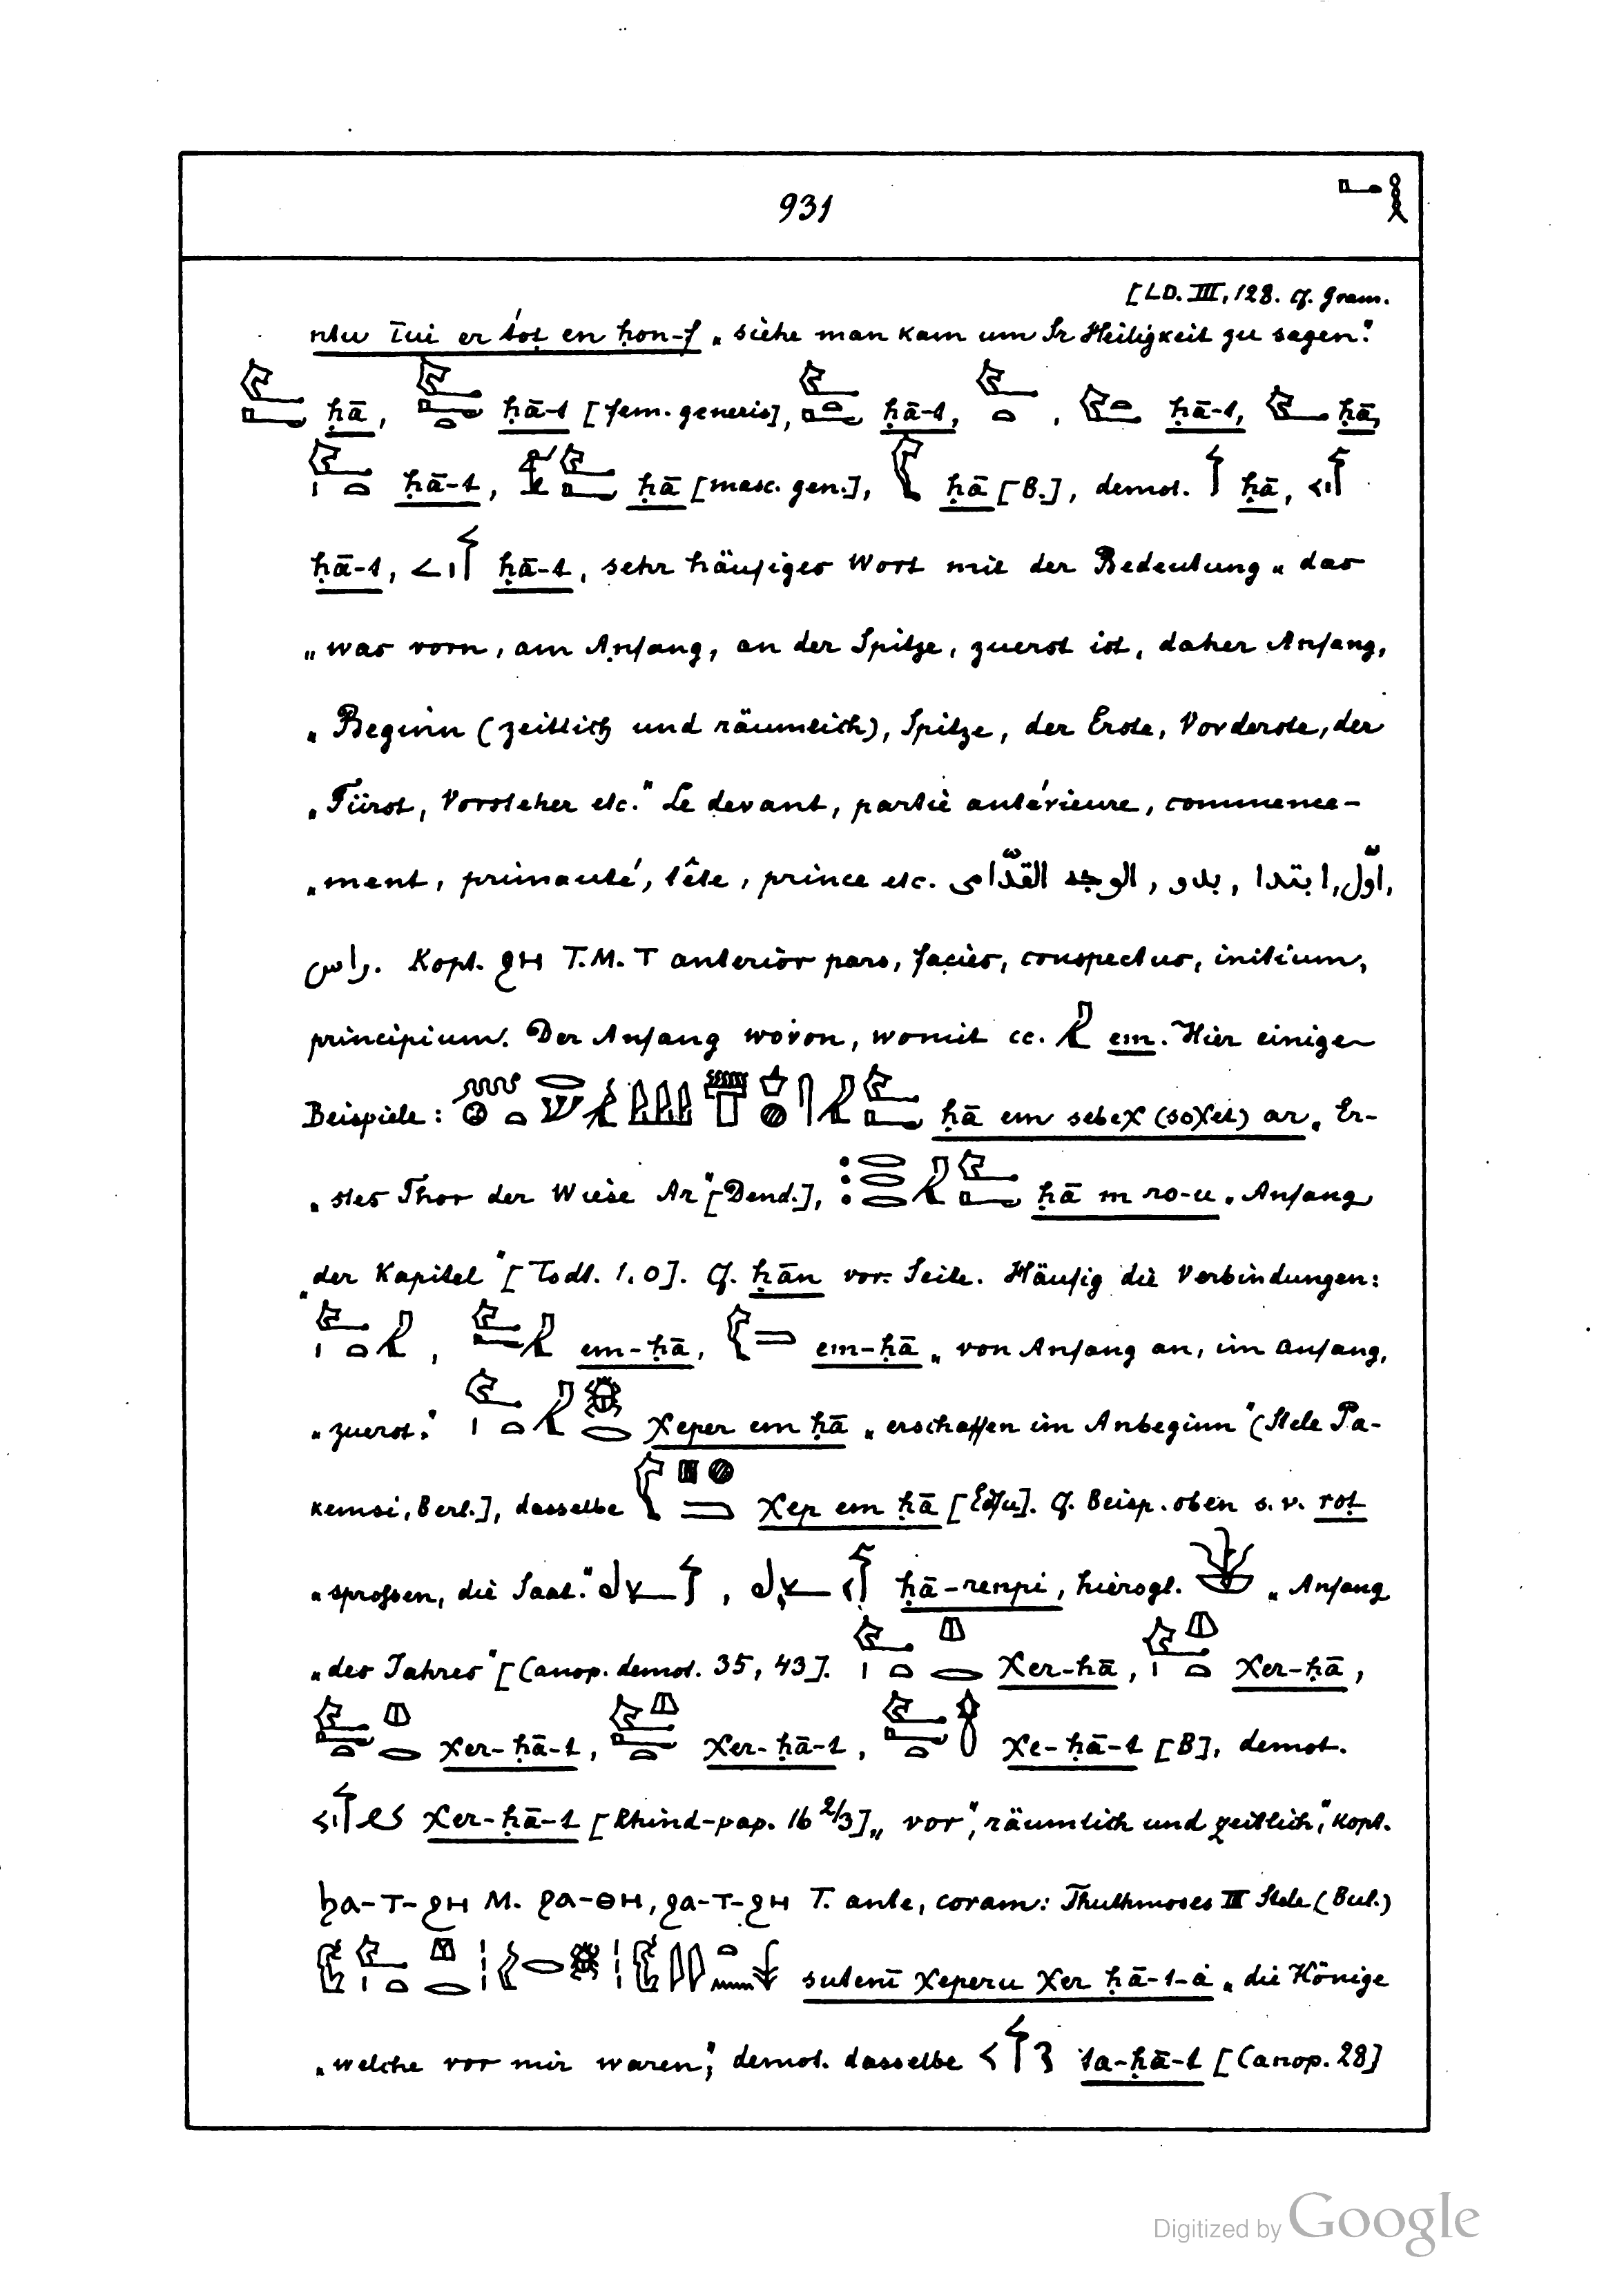 931
[LD. III, 128. cf. Gram.
ntu īui er t́oṭ en ḥon-f „siehe man kam um Sr Heiligkeit zu sagen."
ḥā, ḥā-t [fem. generis], ḥā-t, , ḥā-t, ḥā,
ḥā-t, ḥā [masc. gen.], ḥā [B.], demot. ḥā,
ḥā-t, ḥā-t, sehr häufiges Wort mit der Bedeutung „das
„was vorn, am Anfang, an der Spitze, zuerst ist, daher Anfang,
„Beginn (zeitlich und räumlich), Spitze, der Erste, Vorderste, der
„Fürst, Vorsteher etc." Le devant, partie antérieure, commence-
„ment, primauté, tête, prince etc. اوّل, ابتدا, بدو, الوجه القدّامى,
راس. Kopt. ϩⲏ T.M. ⲧ anterior pars, facies, conspectus, initium,
principium. Der Anfang wovon, womit cc. em. Hier einige
Beispiele: ḥā em sebeχ (soχet) ar „Er-
„stes Thor der Wiese Ar" [Dend.], ḥā m ro-u „Anfang
„der Kapitel" [Todt. 1,0]. cf. ḥān vor. Seite. Häufig die Verbindungen:
, em-ḥā, em-ḥā „von Anfang an, im Anfang,
„zuerst." χeper em ḥā „erschaffen im Anbeginn" (Stele Pa-
kemsi, Berl.], dasselbe χep em ḥā [Edfu]. cf. Beisp. oben s. v. roṭ
„sprossen, die Saat." , ḥā-renpi, hierogl. „Anfang
„des Jahres" [Canop. demot. 35, 43]. χer-ḥā, χer-ḥā,
χer-ḥā-t, χer-ḥā-t, χe-ḥā-t [B], demot.
χer-ḥā-t [Rhind-pap. 16 2/3] „vor", räumlich und zeitlich," Kopt.
ϧⲁ-ⲧ-ϩⲏ M. ϩⲁ-ⲑⲏ, ϩⲁ-ⲧ-ϩⲏ T. ante, coram: Thuthmoses III Stele (Bul.)
sutenī χeperu χer ḥā-t-ȧ „die Könige
„welche vor mir waren", demot. dasselbe ta-ḥā-t [Canop. 28]
Digitized by Google